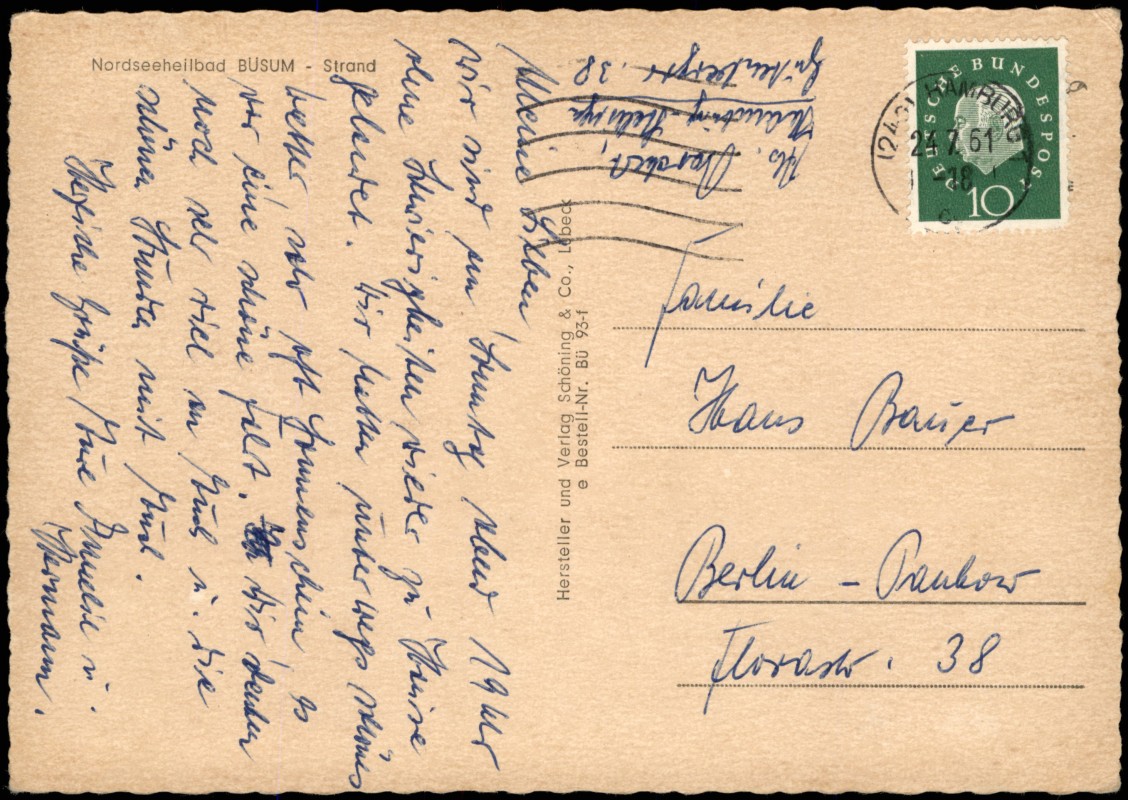 Nordseeheilbad BÜSUM - Strand
Abs. Borchert,
Gutenbergstr. 38
Meine Lieben!
wir sind am Sonntag Abend 19 Uhr
ohne Schwierigkeiten wieder zu Hause
gelandet. Wir hatten unterwegs schönes
Wetter, sehr oft Sonnenschein es
war eine schöne Fahrt. Wir denken
noch sehr viel an Euch u. die
schönen Stunden mit Euch.
Herzliche Grüße Eure Annelie u.
Hermann.
Hersteller und Verlag Schöning & Co., Lübeck
e Bestell-Nr. BÜ 93-f
DEUTSCHE BUNDESPOST
10
(24a) HAMBURG
24.7.61-18
c
Familie
Hans Bauer
Berlin - Pankow
Florastr. 38